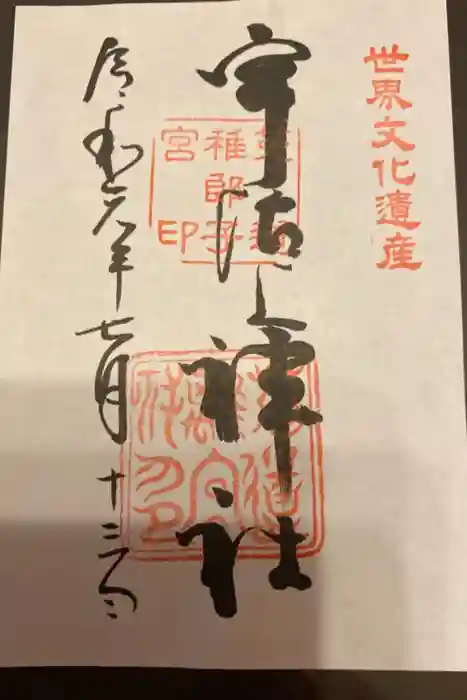 世界文化遺産
宇治上神社
稚郎子
宮印
令和六年七月十三日